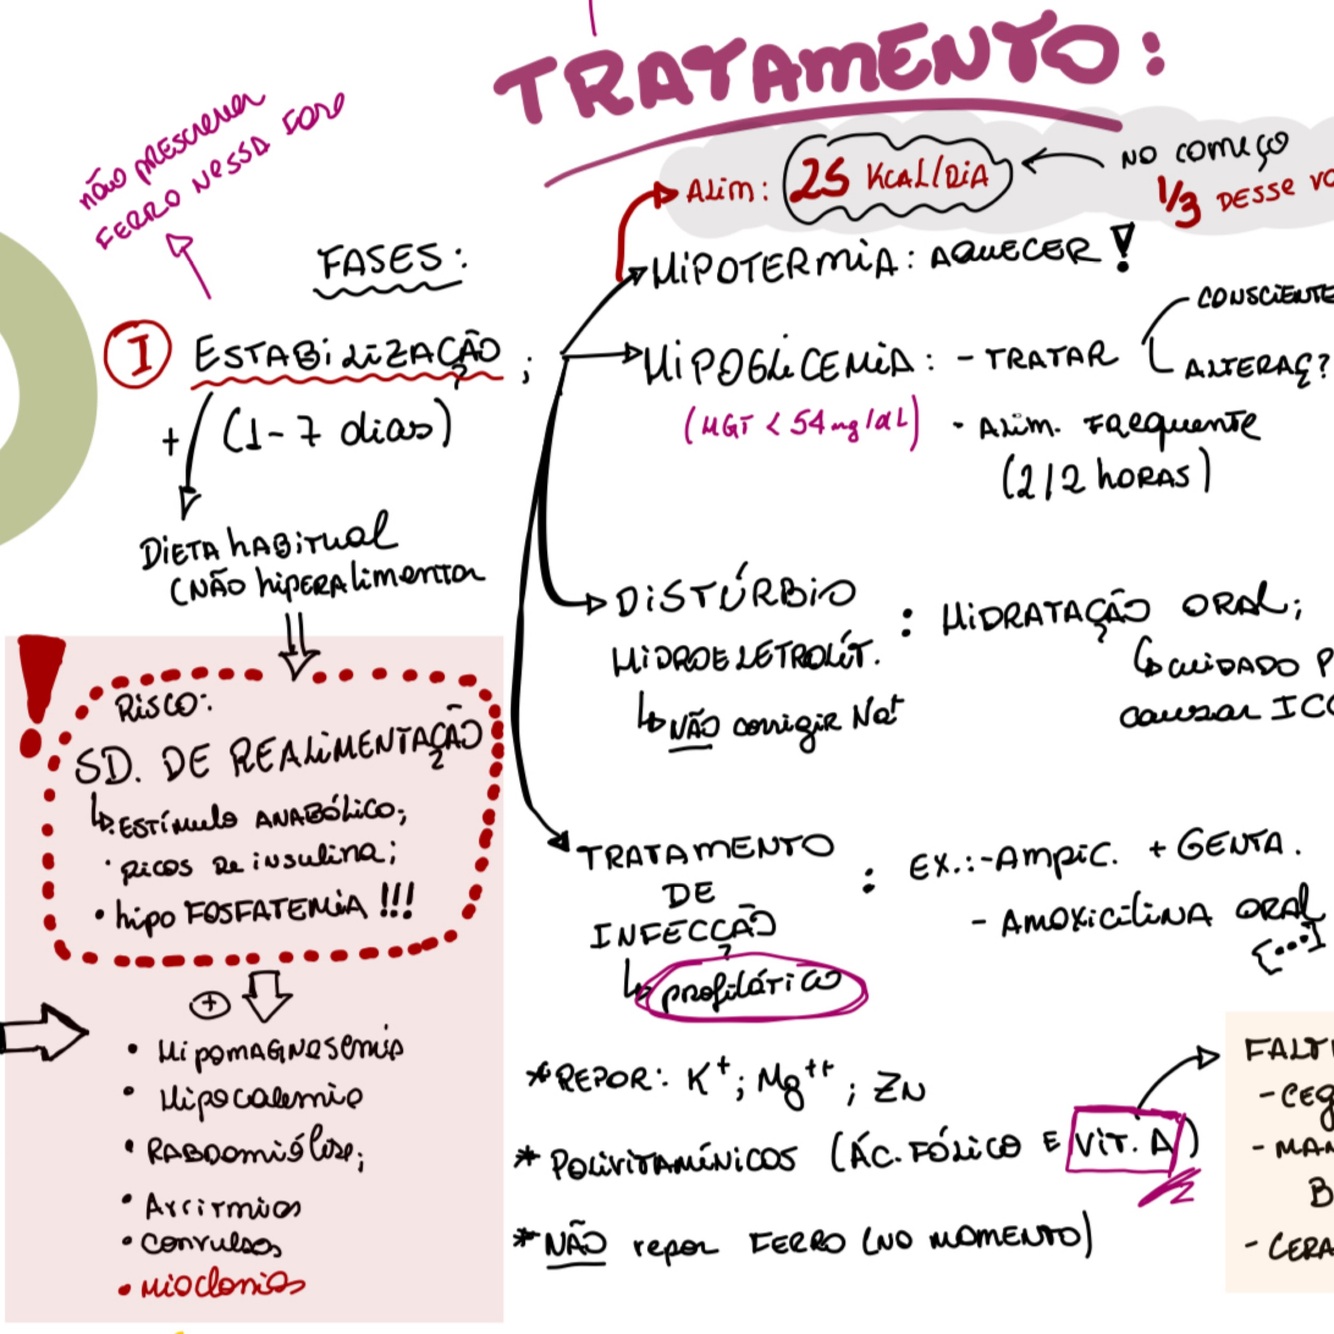 TRATAMENTO:
não prescrever
FERRO NESSA FASE
ALIM: 25 KCAL/DIA
NO COMEÇO
1/3 DESSE VO
FASES:
HIPOTERMIA: AQUECER!
I ESTABILIZAÇÃO;
(1-7 dias)
+
HIPOGLICEMIA: - TRATAR
CONSCIENTE
ALTERAÇ?
(HGT < 54mg/dL)
- ALIM. FREQUENTE
(2/2 HORAS)
DIETA HABITUAL
(NÃO hiperalimentar
DISTÚRBIO
HIDROELETROLÍT.
: HIDRATAÇÃO ORAL;
CUIDADO P
causar ICC
NÃO corrigir Na+
!
RISCO:
SD. DE REALIMENTAÇÃO
ESTÍMULO ANABÓLICO;
• PICOS DE insulina;
• hipo FOSFATEMIA!!!
TRATAMENTO
DE
INFECÇÃO
profilático
: EX.:-AMPIC. + GENTA.
- AMOXICILINA ORAL
[...]
+
• HIPOMAGNESEMIA
• HIPOCALEMIA
• RABDOMIÓLISE;
• ARRITMIAS
• CONVULSÕES
• MIOCLONIAS
*REPOR: K+; Mg++; ZN
* POLIVITAMÍNICOS (ÁC. FÓLICO E VIT. A)
*NÃO repor FERRO (NO MOMENTO)
FALT
- CEG
- MAN
B
- CERA